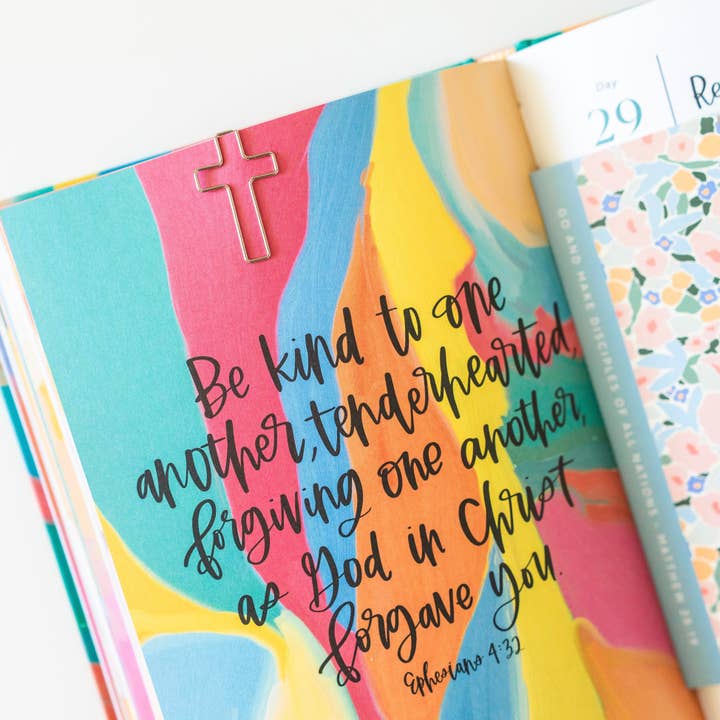 Be kind to one
another, tenderhearted,
forgiving one another,
as God in Christ
forgave you.
Ephesians 4:32
Day
29
Re
GO AND MAKE DISCIPLES OF ALL NATIONS - MATTHEW 28:19